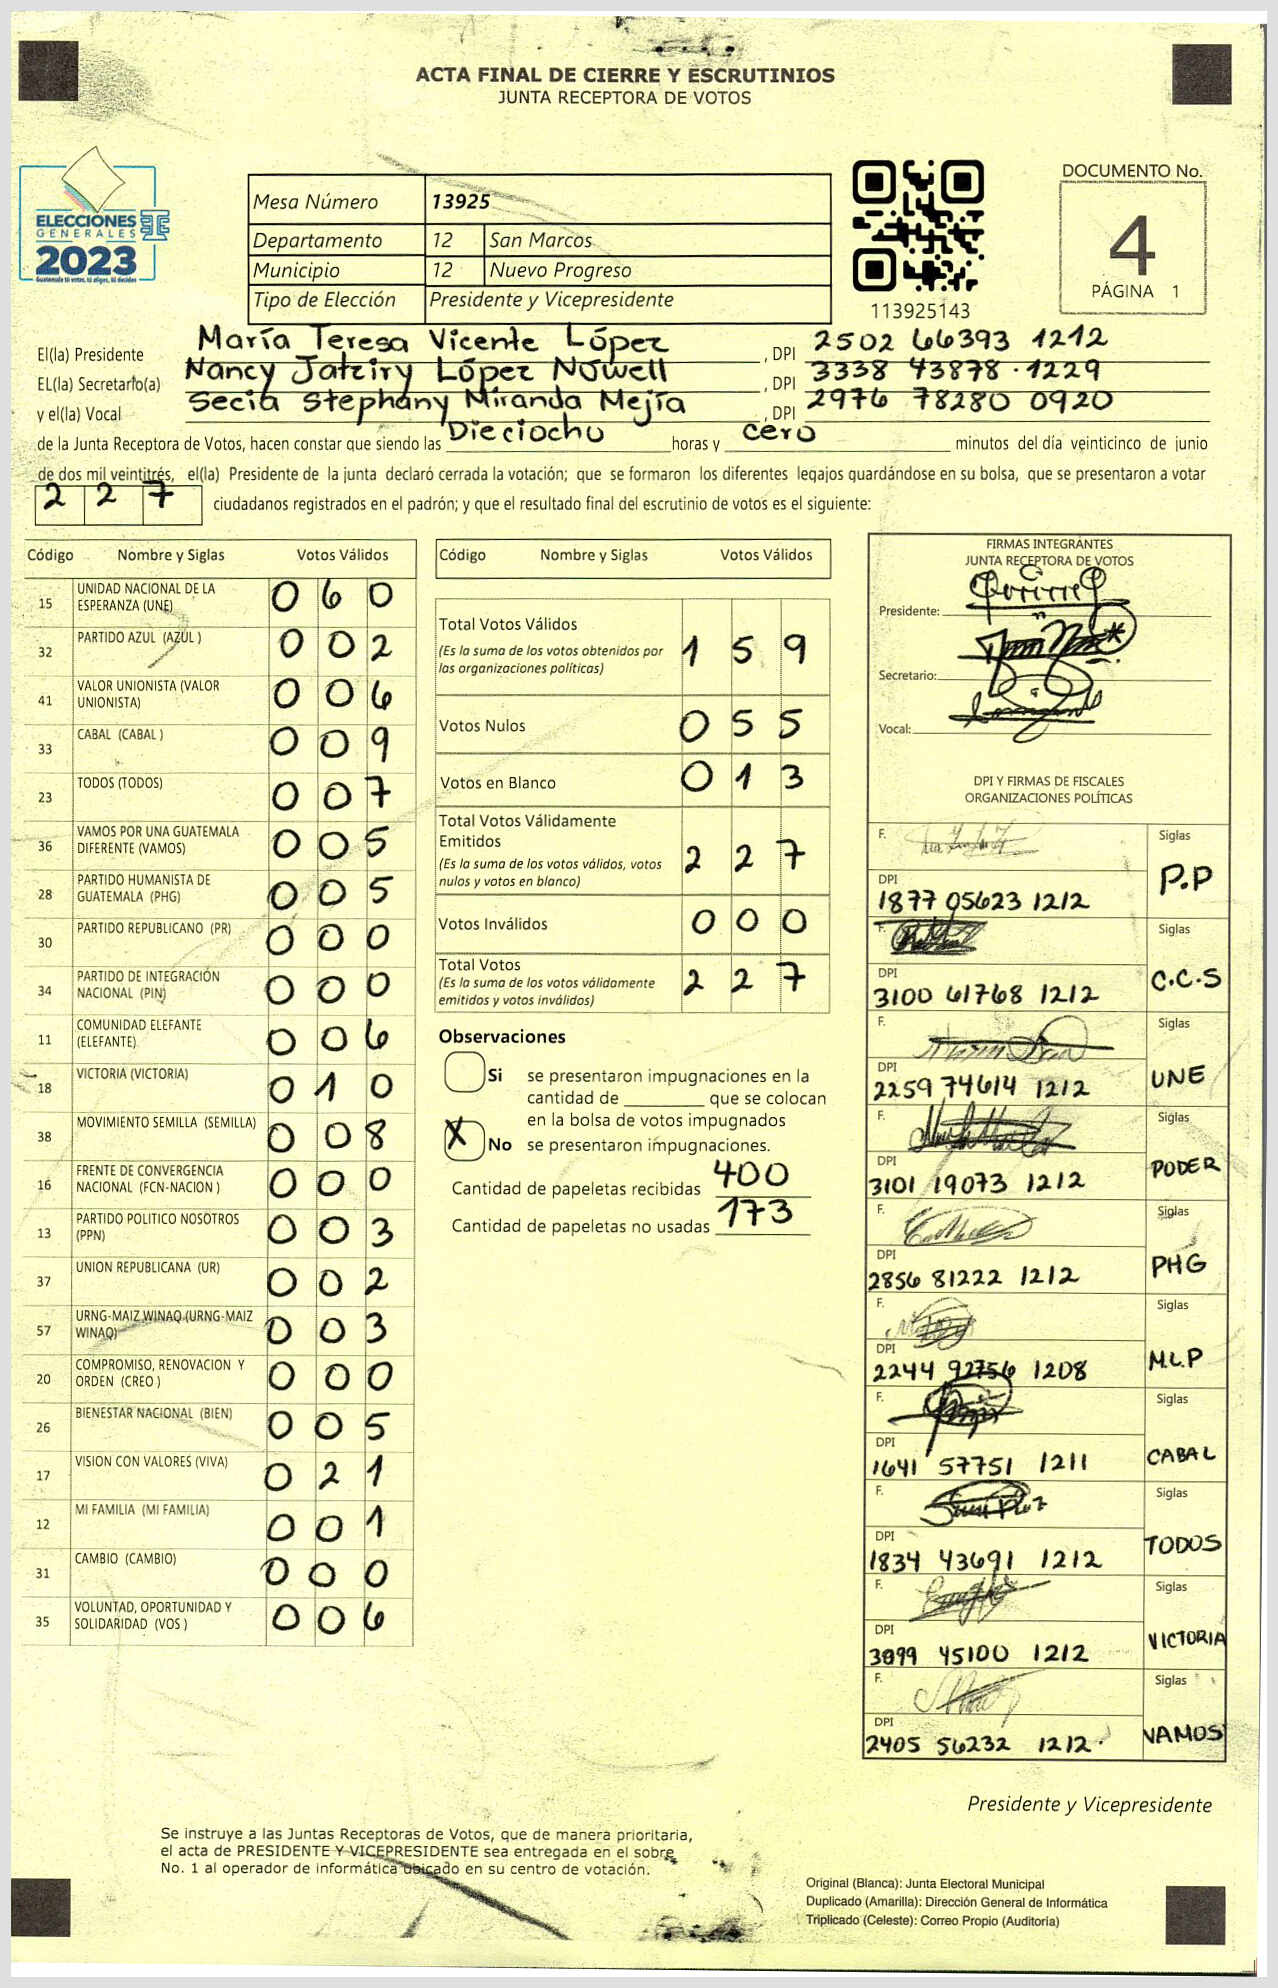 ACTA FINAL DE CIERRE Y ESCRUTINIOS
JUNTA RECEPTORA DE VOTOS
ELECCIONES
GENERALES
2023
Guatemala tú votas, tú eliges, tú decides
Mesa Número 13925
Departamento 12 San Marcos
Municipio 12 Nuevo Progreso
Tipo de Elección Presidente y Vicepresidente
113925143
DOCUMENTO No.
4
PÁGINA 1
El(la) Presidente María Teresa Vicente López , DPI 2502 66393 1212
EL(la) Secretario(a) Nancy Jatziry López Nowell , DPI 3338 43878 · 1229
y el(la) Vocal Secia Stephany Miranda Mejía , DPI 2976 78280 0920
de la Junta Receptora de Votos, hacen constar que siendo las Dieciocho horas y cero minutos del día veinticinco de junio
de dos mil veintitrés, el(la) Presidente de la junta declaró cerrada la votación; que se formaron los diferentes legajos guardándose en su bolsa, que se presentaron a votar
2 2 7 ciudadanos registrados en el padrón; y que el resultado final del escrutinio de votos es el siguiente:
Código Nombre y Siglas Votos Válidos
15 UNIDAD NACIONAL DE LA ESPERANZA (UNE) 0 6 0
32 PARTIDO AZUL (AZUL ) 0 0 2
41 VALOR UNIONISTA (VALOR UNIONISTA) 0 0 6
33 CABAL (CABAL ) 0 0 9
23 TODOS (TODOS) 0 0 7
36 VAMOS POR UNA GUATEMALA DIFERENTE (VAMOS) 0 0 5
28 PARTIDO HUMANISTA DE GUATEMALA (PHG) 0 0 5
30 PARTIDO REPUBLICANO (PR) 0 0 0
34 PARTIDO DE INTEGRACIÓN NACIONAL (PIN) 0 0 0
11 COMUNIDAD ELEFANTE (ELEFANTE) 0 0 6
18 VICTORIA (VICTORIA) 0 1 0
38 MOVIMIENTO SEMILLA (SEMILLA) 0 0 8
16 FRENTE DE CONVERGENCIA NACIONAL (FCN-NACION ) 0 0 0
13 PARTIDO POLITICO NOSOTROS (PPN) 0 0 3
37 UNION REPUBLICANA (UR) 0 0 2
57 URNG-MAIZ WINAQ (URNG-MAIZ WINAQ) 0 0 3
20 COMPROMISO, RENOVACION Y ORDEN (CREO ) 0 0 0
26 BIENESTAR NACIONAL (BIEN) 0 0 5
17 VISION CON VALORES (VIVA) 0 2 1
12 MI FAMILIA (MI FAMILIA) 0 0 1
31 CAMBIO (CAMBIO) 0 0 0
35 VOLUNTAD, OPORTUNIDAD Y SOLIDARIDAD (VOS ) 0 0 6
Código Nombre y Siglas Votos Válidos
Total Votos Válidos 1 5 9
(Es la suma de los votos obtenidos por
las organizaciones políticas)
Votos Nulos 0 5 5
Votos en Blanco 0 1 3
Total Votos Válidamente
Emitidos 2 2 7
(Es la suma de los votos válidos, votos
nulos y votos en blanco)
Votos Inválidos 0 0 0
Total Votos 2 2 7
(Es la suma de los votos válidamente
emitidos y votos inválidos)
Observaciones
Si se presentaron impugnaciones en la
cantidad de ________ que se colocan
en la bolsa de votos impugnados
X No se presentaron impugnaciones.
Cantidad de papeletas recibidas 400
Cantidad de papeletas no usadas 173
FIRMAS INTEGRANTES
JUNTA RECEPTORA DE VOTOS
Presidente:
Secretario:
Vocal:
DPI Y FIRMAS DE FISCALES
ORGANIZACIONES POLÍTICAS
F. Siglas
DPI P.P
1877 05623 1212
F. Siglas
DPI C.C.S
3100 61768 1212
F. Siglas
DPI UNE
2259 74614 1212
F. Siglas
DPI PODER
3101 19073 1212
F. Siglas
DPI PHG
2856 81222 1212
F. Siglas
DPI M.L.P
2244 92756 1208
F. Siglas
DPI CABAL
1641 57751 1211
F. Siglas
DPI TODOS
1834 43691 1212
F. Siglas
DPI VICTORIA
3099 45100 1212
F. Siglas
DPI VAMOS
2405 56232 1212.
Presidente y Vicepresidente
Se instruye a las Juntas Receptoras de Votos, que de manera prioritaria,
el acta de PRESIDENTE Y VICEPRESIDENTE sea entregada en el sobre
No. 1 al operador de informática ubicado en su centro de votación.
Original (Blanca): Junta Electoral Municipal
Duplicado (Amarilla): Dirección General de Informática
Triplicado (Celeste): Correo Propio (Auditoría)